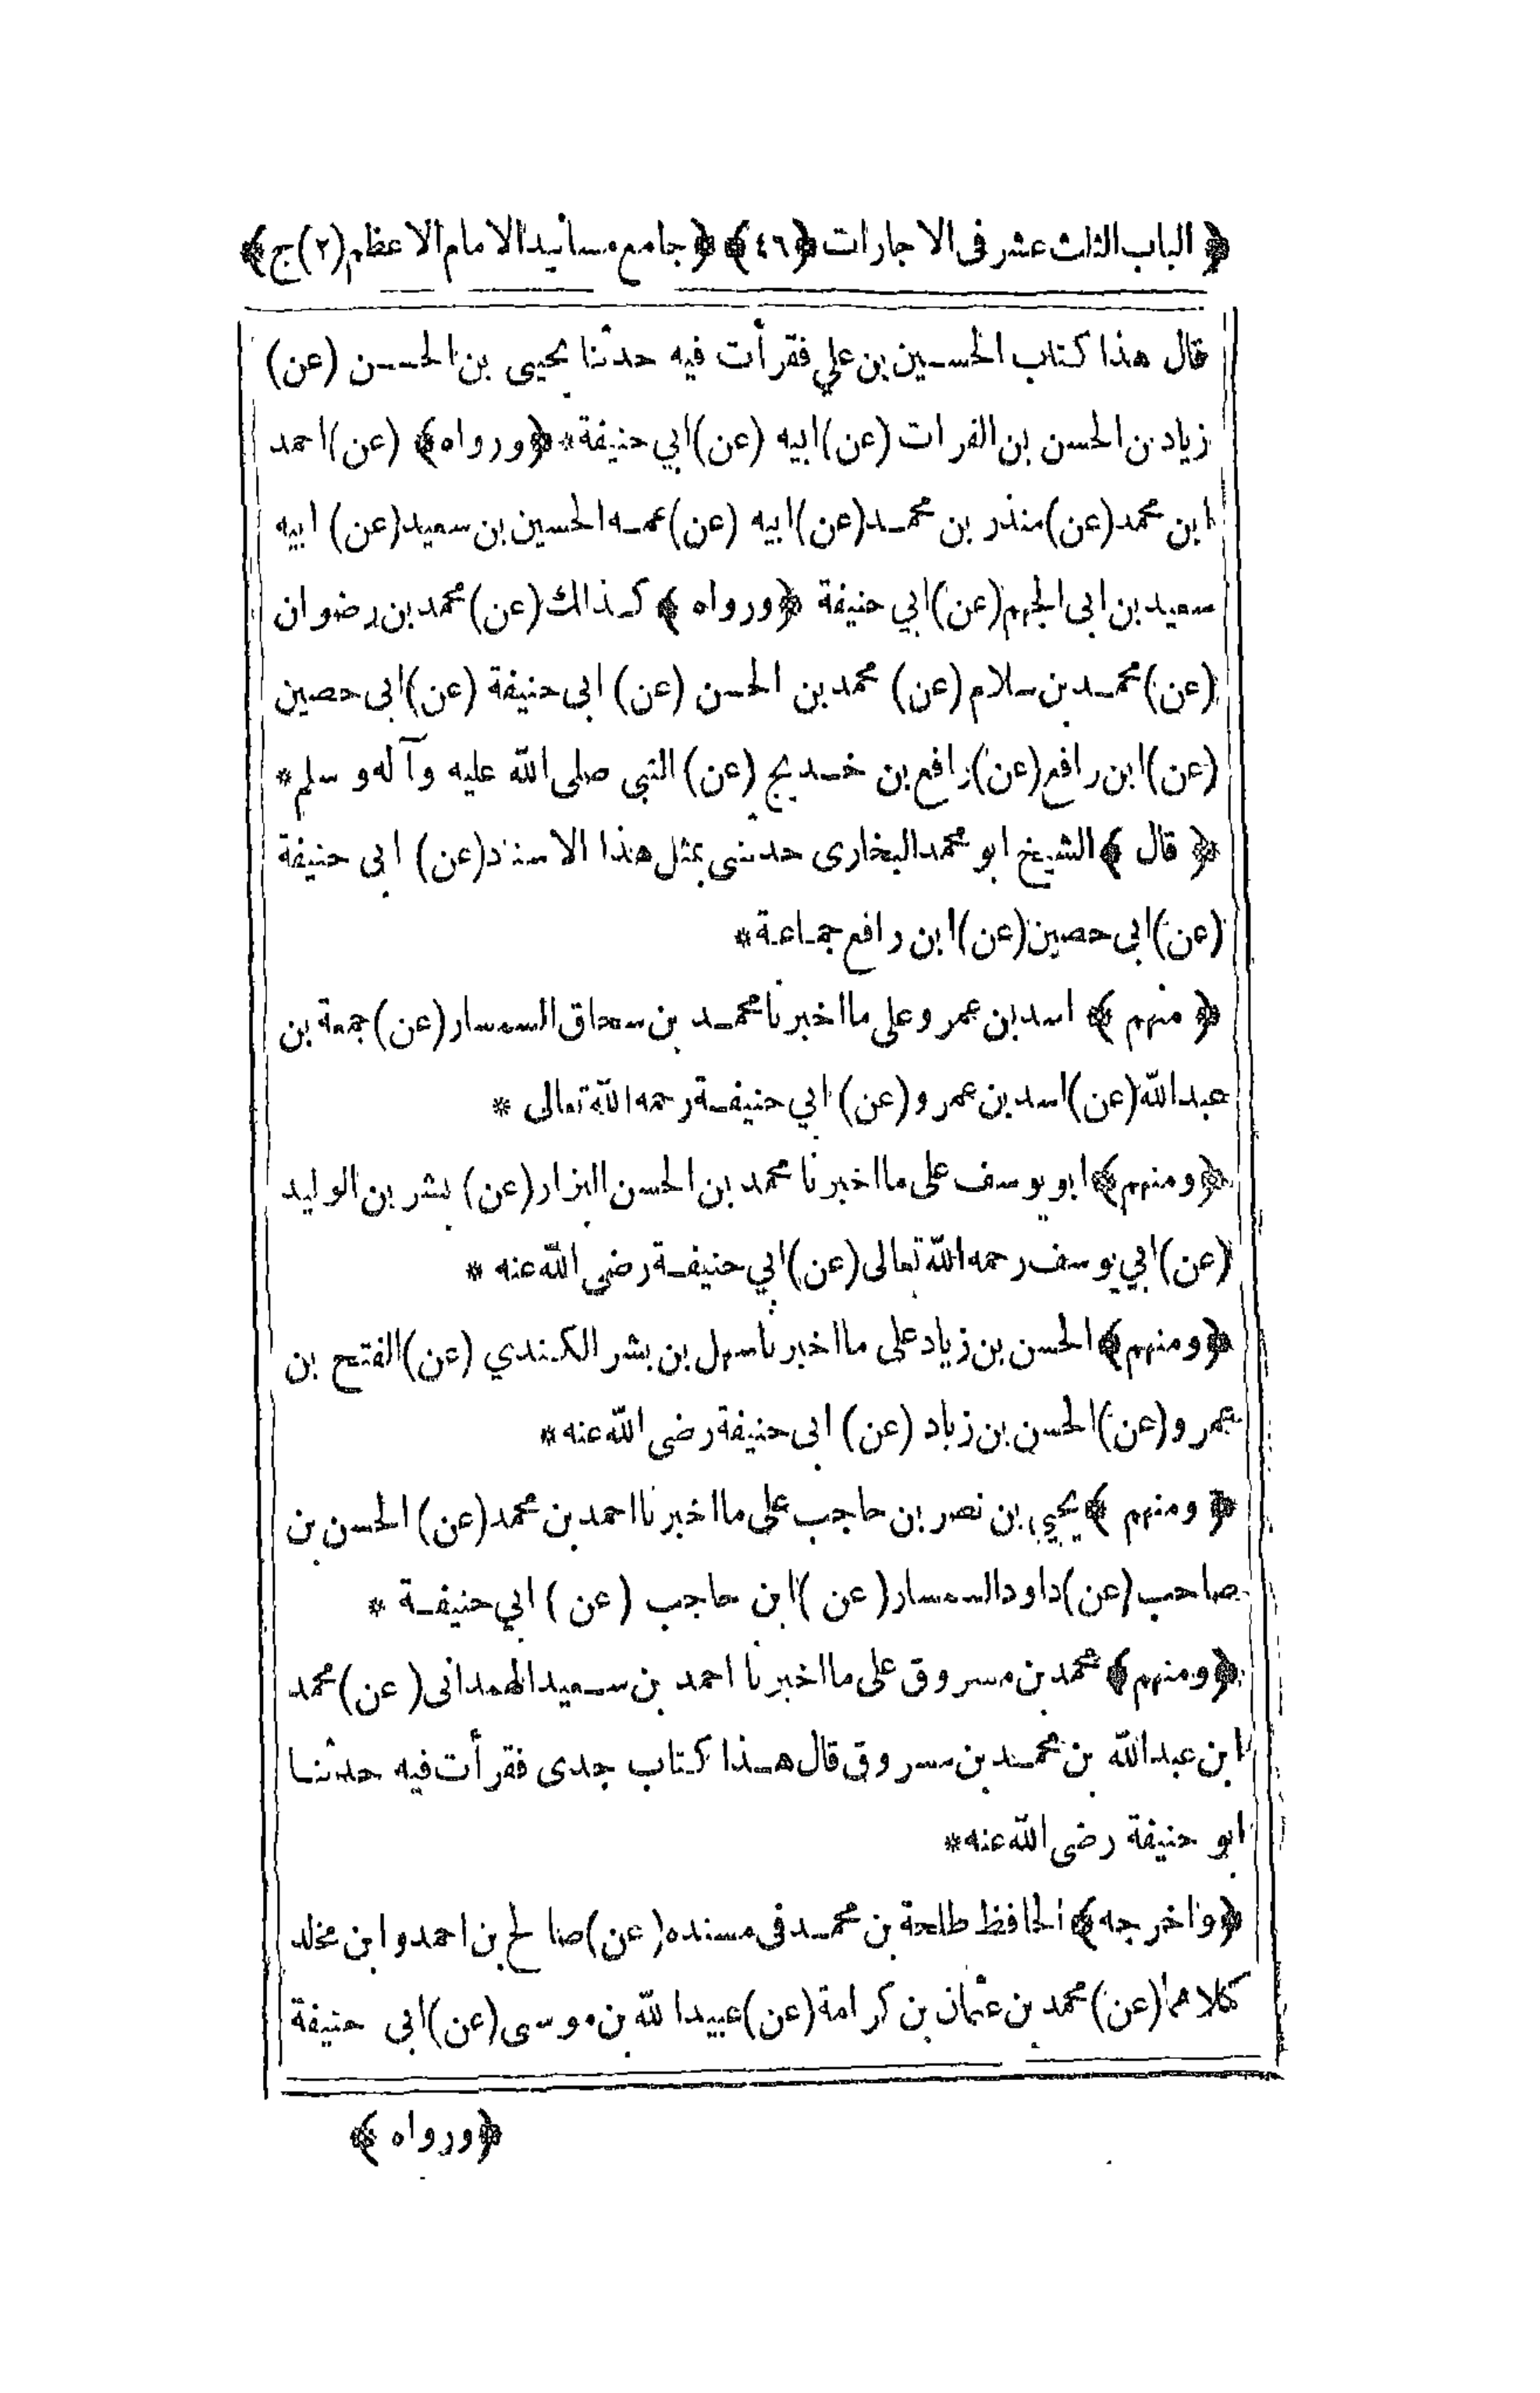 ﴿ الباب الثالث عشر فى الاجارات ﴿٤٦﴾ ﴿ جامع مسانيد الامام الاعظم (٢) ج﴾
قال هذا كتاب الحسين بن علي فقرأت فيه حدثنا يحيى بن الحسن (عن)
زياد بن الحسن بن الفرات (عن) ابيه (عن) ابي حنيفة * ﴿ورواه﴾ (عن) احمد
ابن محمد (عن) منذر بن محمد (عن) ابيه (عن) عمه الحسين بن سعيد (عن) ابيه
سعيد بن ابى الجهم (عن) ابي حنيفة ﴿ورواه ﴾ كذالك (عن) محمد بن رضوان
(عن) محمد بن سلام (عن) محمد بن الحسن (عن) ابى حنيفة (عن) ابى حصين
(عن) ابن رافع (عن) رافع بن خديج (عن) النبى صلى الله عليه وآله وسلم *
﴿ قال ﴾ الشيخ ابو محمد البخارى حدثنى بمثل هذا الاسناد (عن) ابى حنيفة
(عن) ابى حصين (عن) ابن رافع جماعة *
﴿ منهم ﴾ اسد بن عمرو على ما اخبرنا محمد بن سحاق السمسار (عن) جمعة بن
عبدالله (عن) اسد بن عمرو (عن) ابي حنيفة رحمه الله تعالى *
﴿ومنهم﴾ ابو يوسف على ما اخبرنا محمد بن الحسن البزار (عن) بشر بن الوليد
(عن) ابي يوسف رحمه الله تعالى (عن) ابي حنيفة رضى الله عنه *
﴿ومنهم﴾ الحسن بن زياد على ما اخبرنا سهل بن بشر الكندي (عن) الفتح بن
عمرو (عن) الحسن بن زياد (عن) ابى حنيفة رضى الله عنه *
﴿ ومنهم ﴾ يحيى بن نصر بن حاجب على ما اخبرنا احمد بن محمد (عن) الحسن بن
صاحب (عن) داود السمسار (عن) ابن حاجب (عن) ابي حنيفة *
﴿ومنهم﴾ محمد بن مسروق على ما اخبرنا احمد بن سعيد الهمدانى (عن) محمد
ابن عبدالله بن محمد بن مسروق قال هذا كتاب جدى فقرأت فيه حدثنا
ابو حنيفة رضى الله عنه *
﴿واخرجه﴾ الحافظ طلحة بن محمد فى مسنده (عن) صالح بن احمد وابن مخلد
كلاهما (عن) محمد بن عثمان بن كرامة (عن) عبيدالله بن موسى (عن) ابى حنيفة
﴿ورواه ﴾